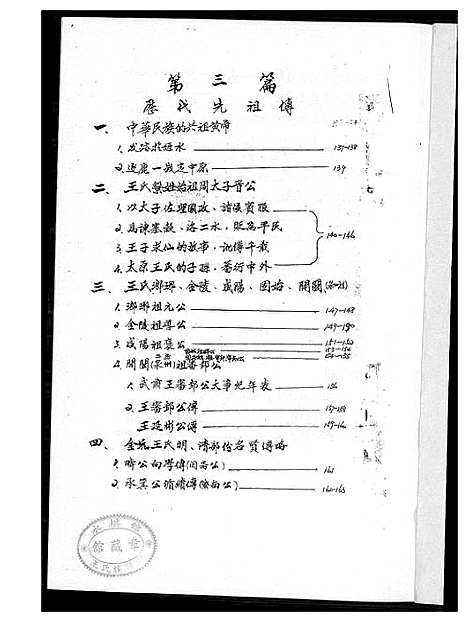 第三篇
歷代先祖傳
一、中華民族的共祖黃帝
1. 发溶於姬水 137-138
2. 逐鹿一戰定中原 139
二、王氏繫姓始祖周太子晉公
1. 以太子佐理國政、諸侯賓服
2. 為諫壅穀、洛二水，貶為平民
3. 王子求仙的故事，訛傳千載
4. 太原王氏的子孫，蕃衍中外
140-146
三、王氏瑯琊、金陵、咸陽、固始、開閩
1. 瑯琊祖元公 147-148
2. 金陵祖導公 149-150
3. 咸陽祖褒公 151-152
4. 開閩(泉州)祖審邽公
1. 武肅王審邽公大事紀年表 156
2. 王審邽公傳 157-158
王延彬公傳 159-160
四、金坑王氏明、清部份名賢傳略
1. 時公向學傳 161
2. 永箕公循績傳 162-163
藏館